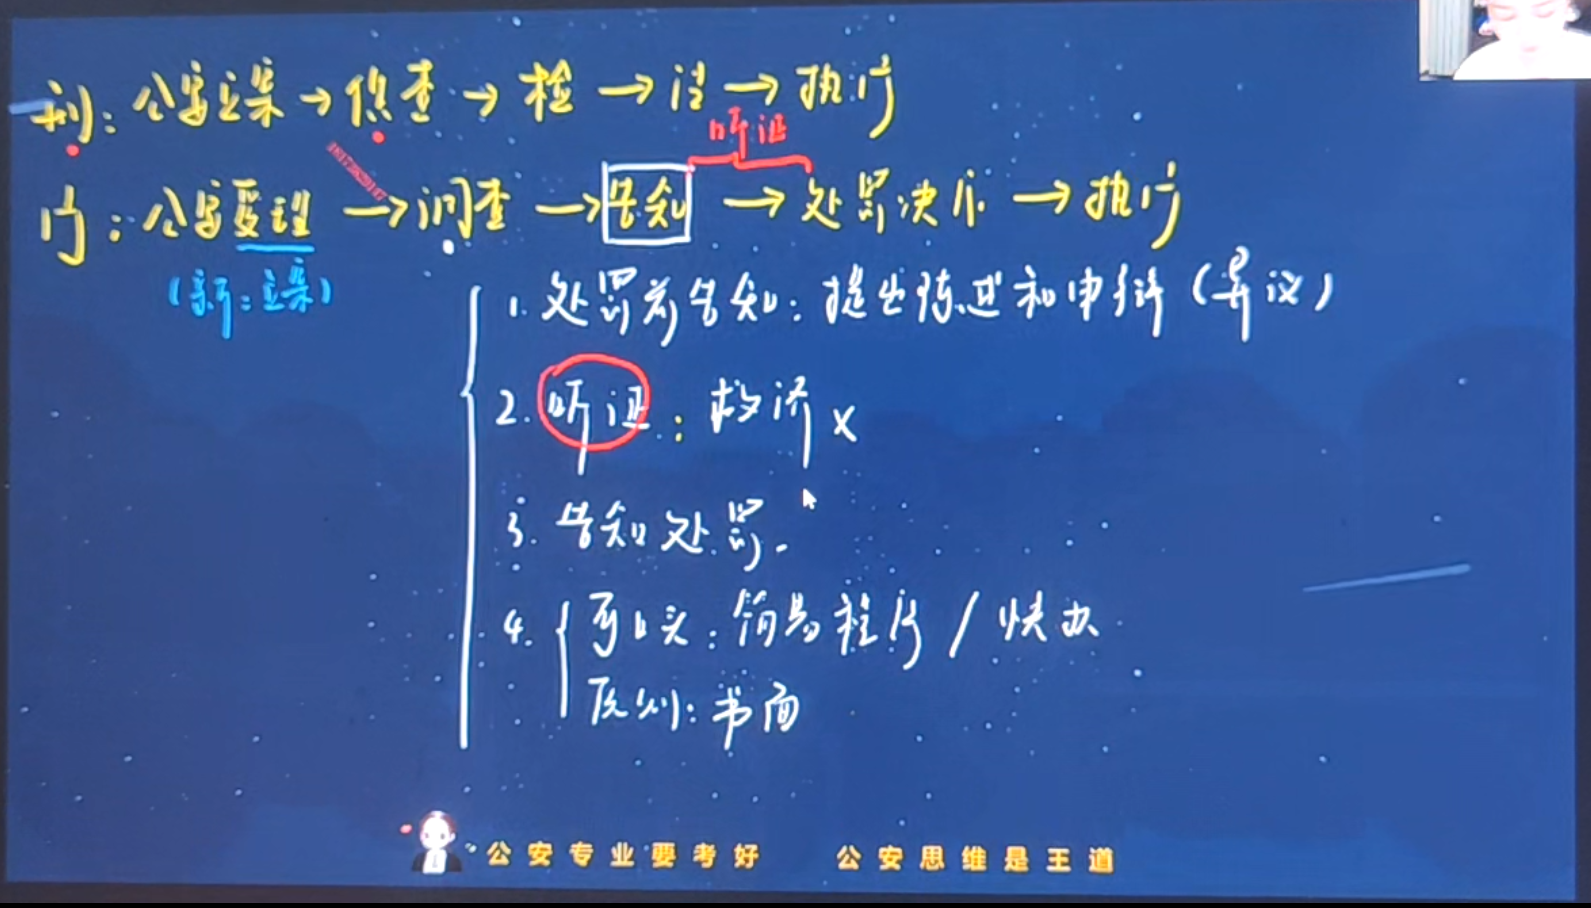 刑：公安立案→侦查→检→法→执行
听证
行：公安受理→调查→告知→处罚决定→执行
（新：立案）
1.处罚前告知：提出陈述和申辩（异议）
2.听证：救济 x
3.告知处罚.
4.{可口头：简易程序/快办
原则：书面
公安专业要考好 公安思维是王道